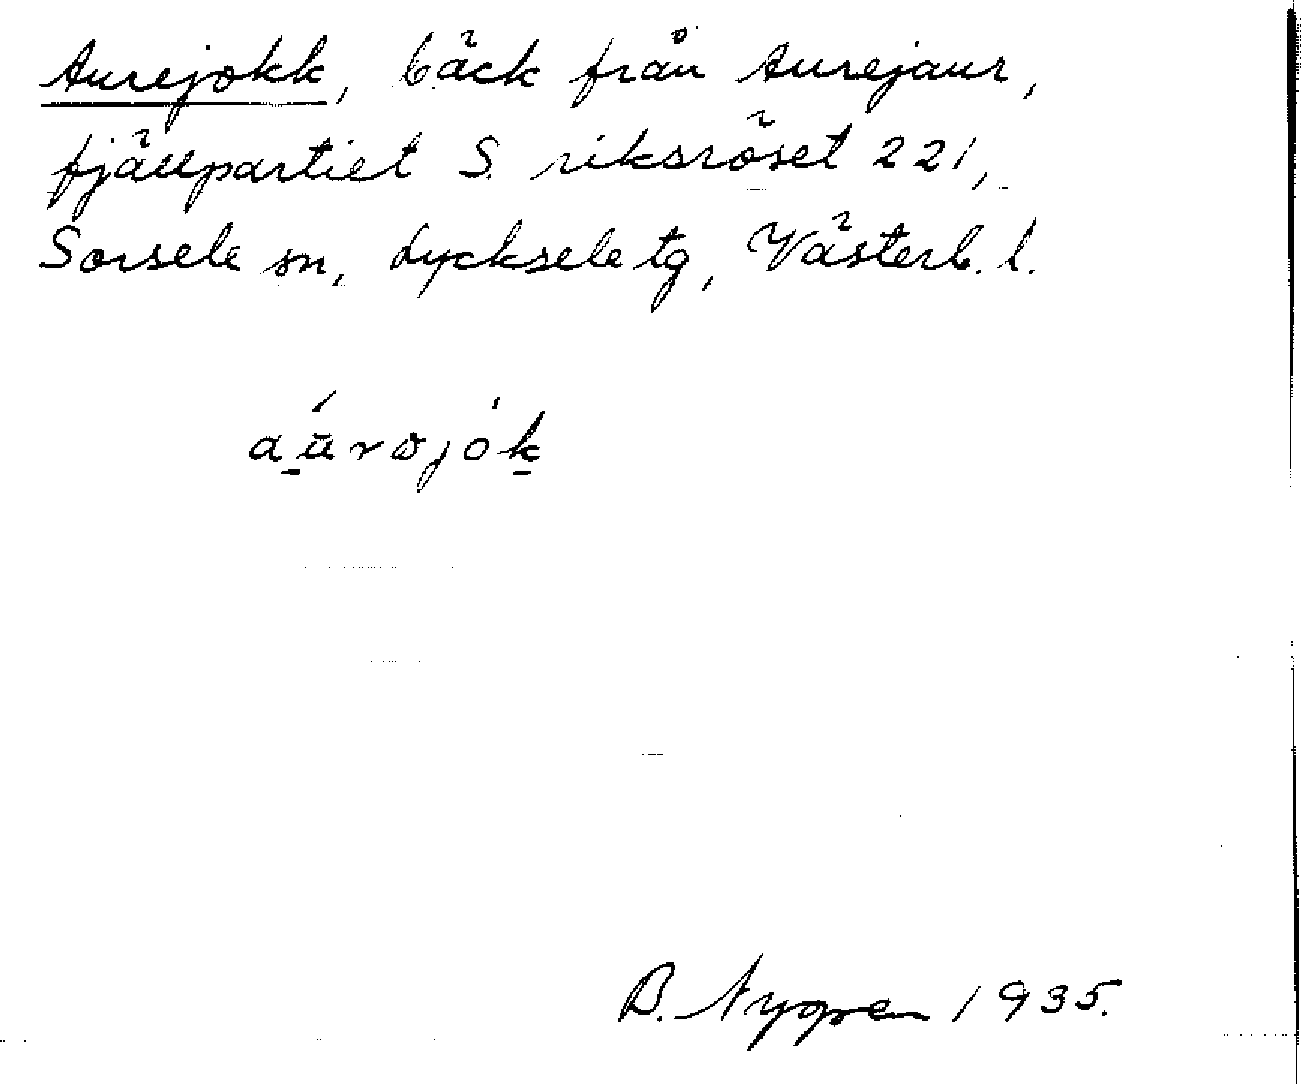 Aurejokk, bäck från Aurejaur,
fjällpartiet S. riksröset 221,
Sorsele sn, Lycksele tg, Västerb. l.
B. Nygren 1935.